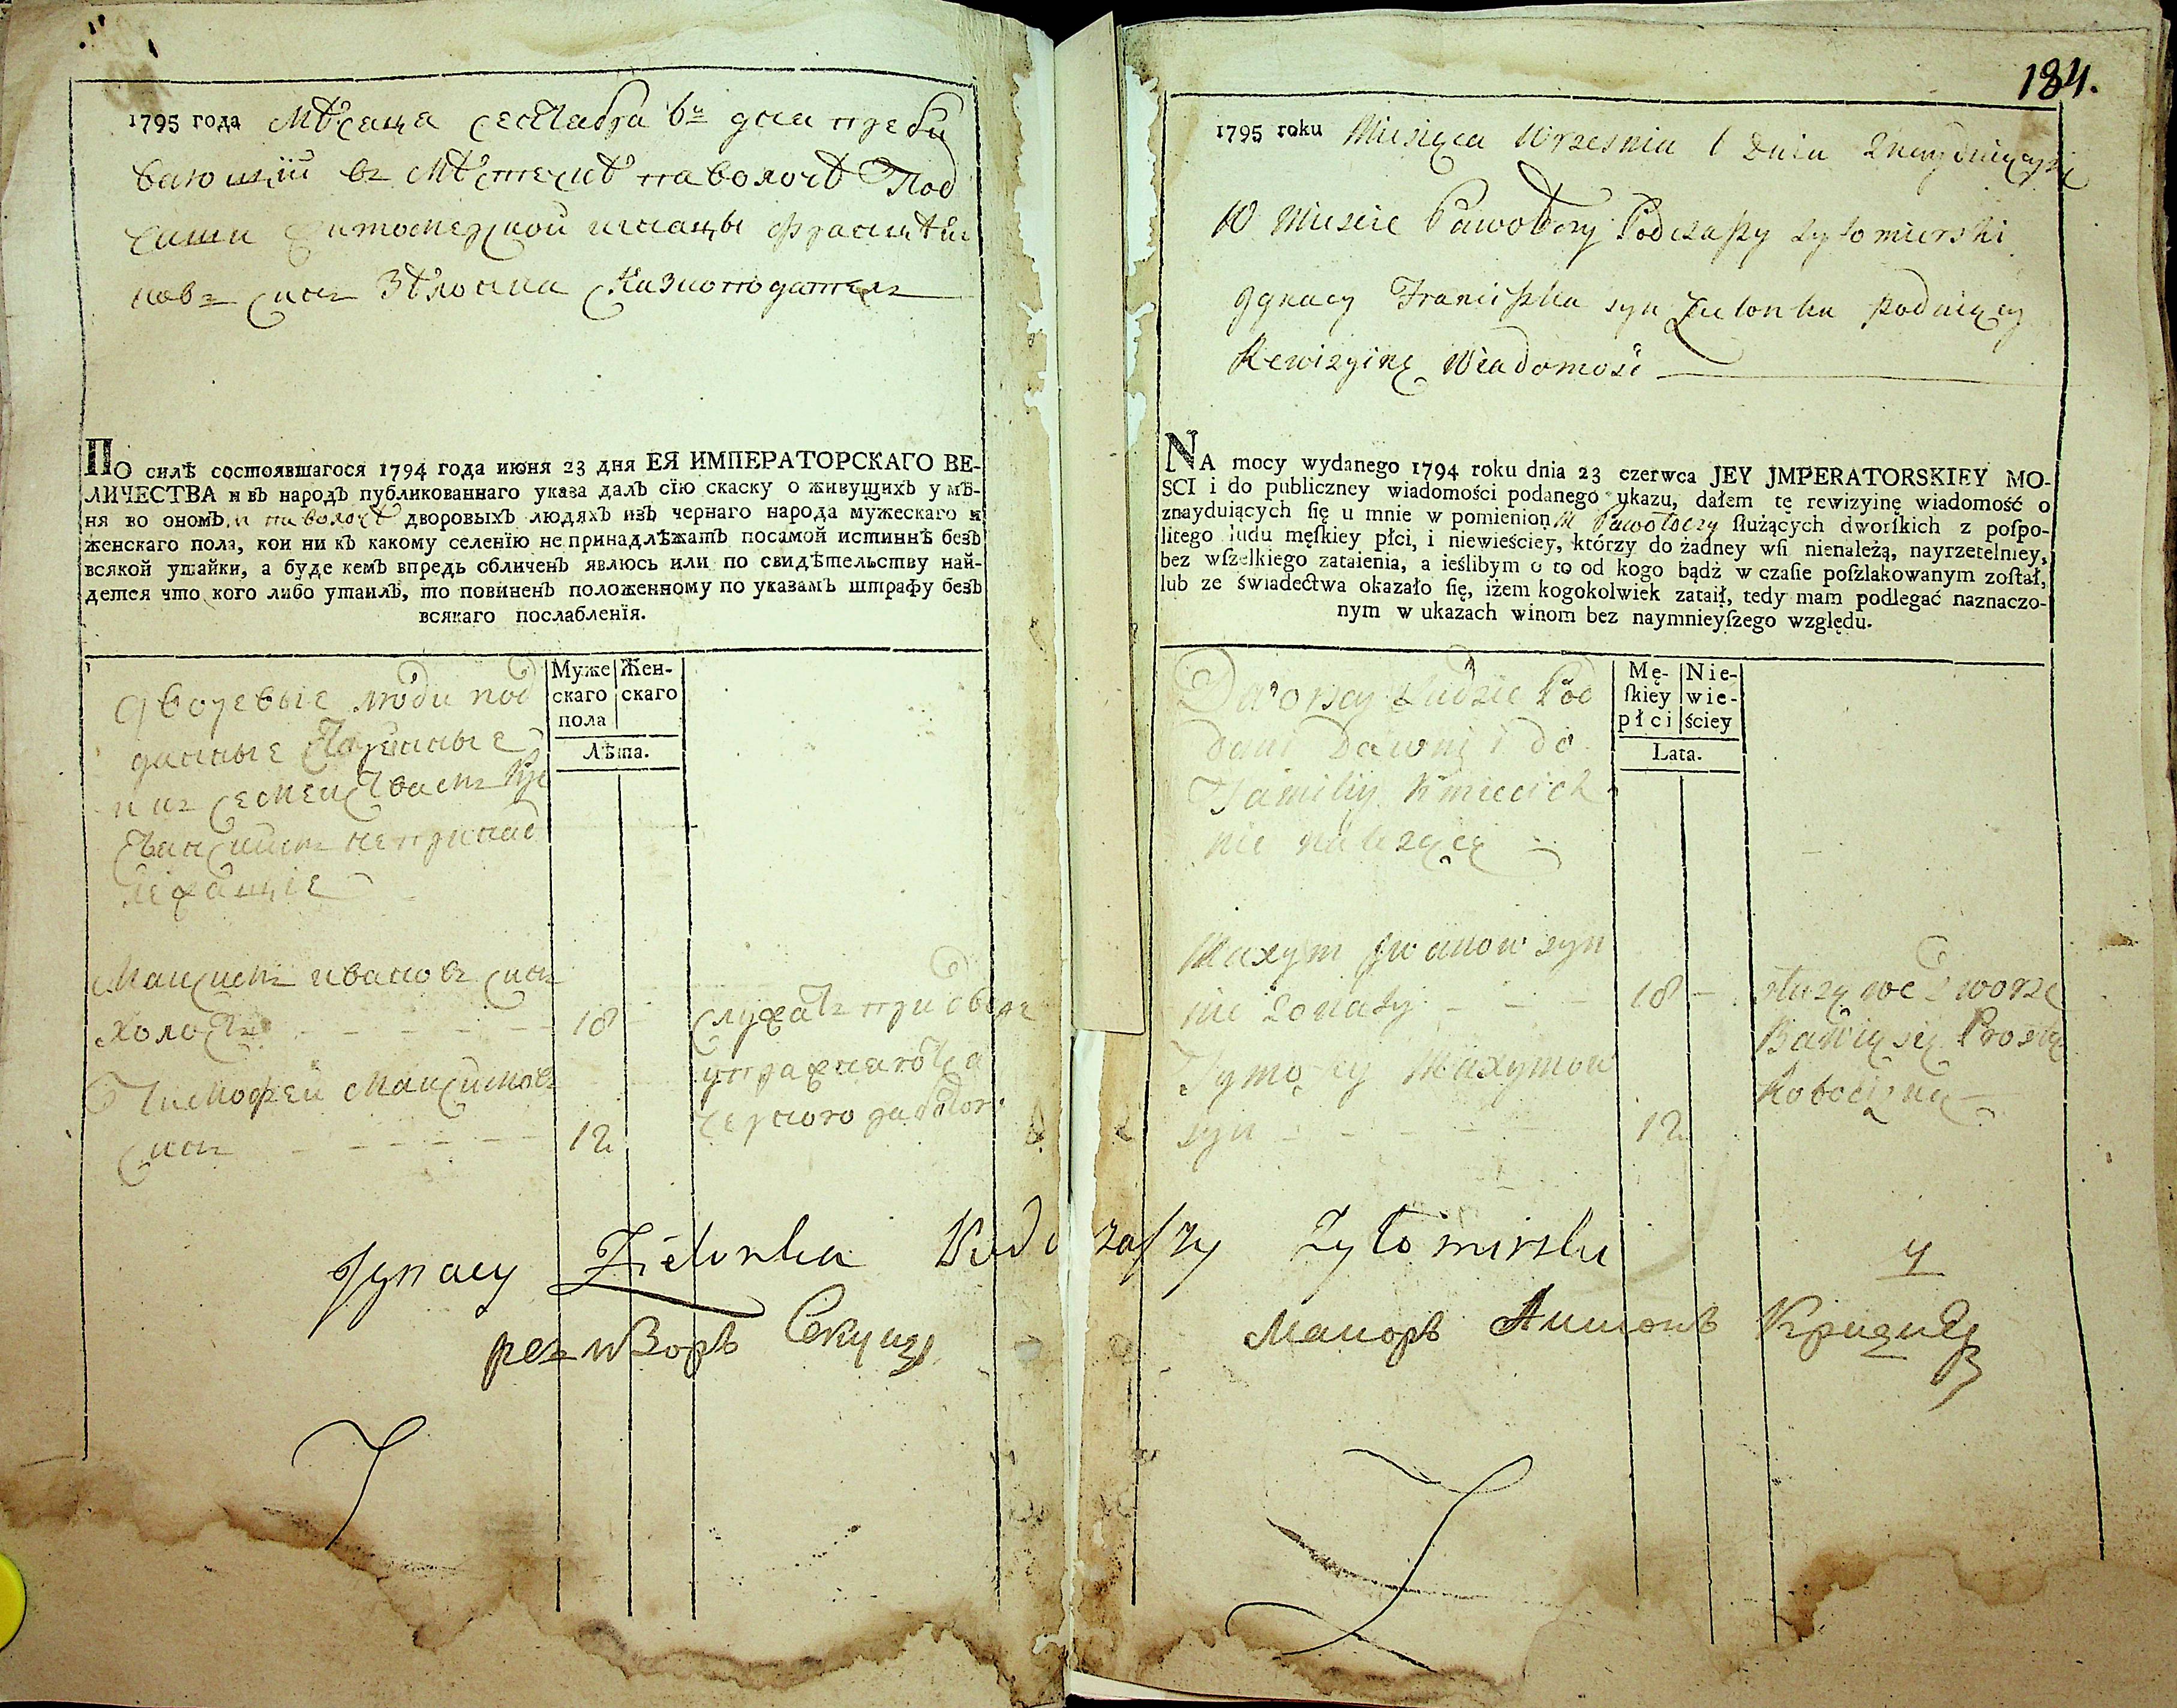 1795 года Мѣсаца сентабра 6го дна пребы
ваю щїй въ мѣстечкѣ паволочѣ Под
чаши житомерской игнацы францѣш
ковъ сынъ Зѣлонка Сказкоподатель
ПО силѣ состоявшагося 1794 года июня 23 дня ЕЯ ИМПЕРАТОРСКАГО ВЕ-
ЛИЧЕСТВА и въ народъ публикованнаго указа далъ сїю скаску о живущихъ у мѣ-
ня во ономъ м паволочѣ дворовыхъ людяхъ изъ чернаго народа мужескаго и
женскаго пола, кои ни къ какому селенїю не принадлѣжатъ посамой истиннѣ безъ
всякой утайки, а буде кемъ впредь обличенъ явлюсь или по свидѣтельству най-
дется что кого либо утаилъ, то повиненъ положенному по указамъ штрафу безъ
всякаго послабленїя.
Муже Жен-
скаго скаго
пола
Лѣта.
Дворевые люди под
данные
не принад
лежащїе
Максимъ ивановъ сынъ
холостъ 18 служатъ при дворе
Тимофей Максимовъ упражнаютса
сынъ 12 черного работою
184.
1795 roku Miesiąca Wrzesnia 6 Dnia Znayduiący się
W Miescie Pawołoczy Podczaszy Zytomierski
Jgnacy Franciszka syn Zielonka Podaiący
Rewizyinę Wiadomość
NA mocy wydanego 1794 roku dnia 23 czerwca JEY JMPERATORSKIEY MO-
SCI i do publiczney wiadomości podanego ukazu, dałem tę rewizyinę wiadomość o
znayduiących ſię u mnie w pomienion M Pawołoczy ſłużących dworſkich z poſpo-
litego ludu męſkiey płci, i niewieściey, którzy do żadney wſi nienależą, nayrzetelniey,
bez wſzelkiego zataienia, a ieślibym o to od kogo bądź w czaſie poſzlakowanym zoſtał,
lub ze świadectwa okazało ſię, iżem kogokolwiek zataił, tedy mam podlegać naznaczo-
nym w ukazach winom bez naymnieyſzego względu.
Mę- Nie-
ſkiey wie-
płci ściey
Lata.
Dworscy Ludzie Pod
dani Dawni i do
Familiy Kmiecich
nie należące
Maxym Jwanow syn
nie Zonaty 18 służą we Dworze
Bawią się Prostą
Tymoszy Maxymow Robocizną
syn 12
Jgnacy Zielonka Podczaszy Zytomirski
4
ревизоръ Секунд Маиоръ Антонъ